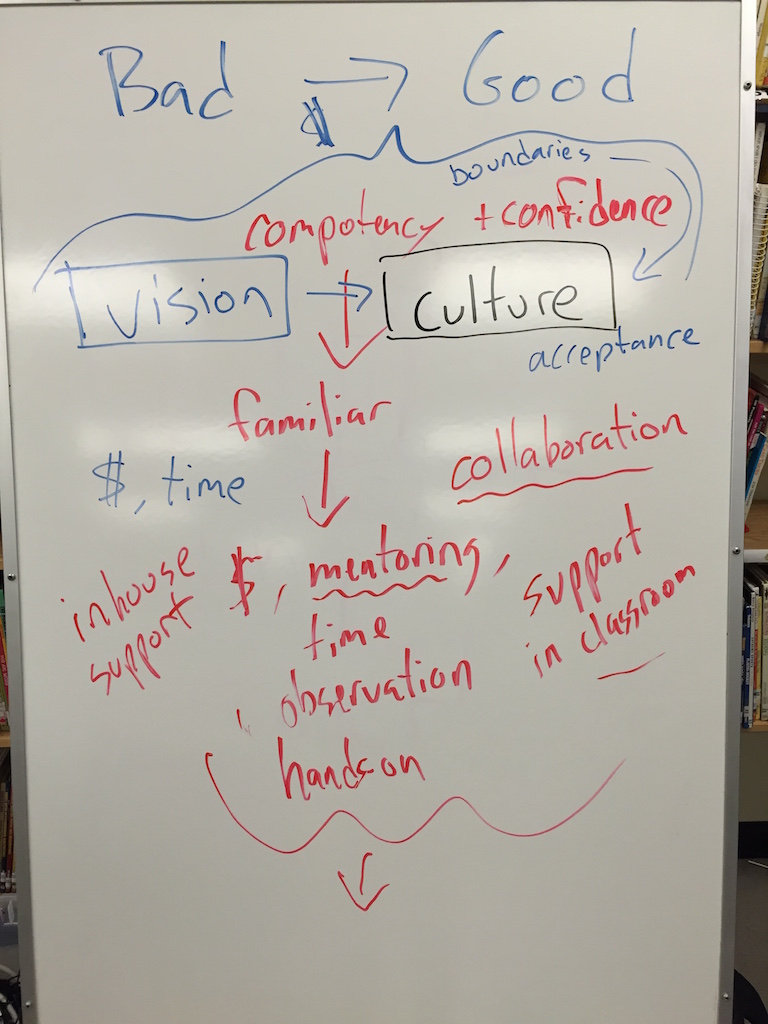 Bad → Good
$
boundaries
compotency + confidence
vision → culture
acceptance
familiar
collaboration
$, time
inhouse support
$, mentoring,
time
observation
hands on
support
in classroom